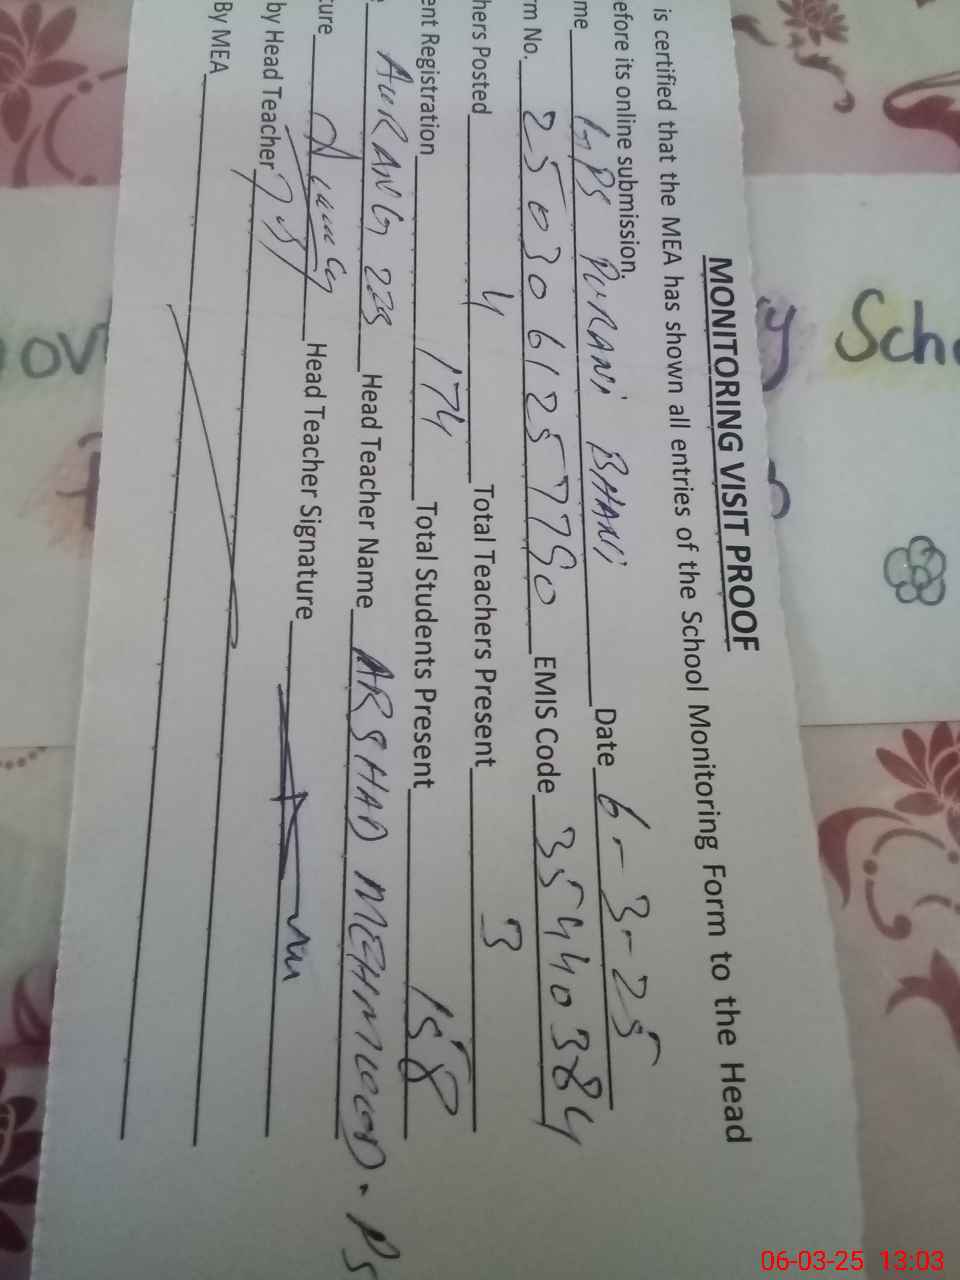 MONITORING VISIT PROOF
is certified that the MEA has shown all entries of the School Monitoring Form to the Head
efore its online submission.
me GPS PURANI BHANI Date 6-3-25
rm No. 2503061257790 EMIS Code 35440384
hers Posted 4 Total Teachers Present 3
ent Registration 174 Total Students Present 158
AURANG ZEB Head Teacher Name ARSHAD MEHMOOD. PS
ture Head Teacher Signature
by Head Teacher
By MEA
Sch
ov
06-03-25 13:03